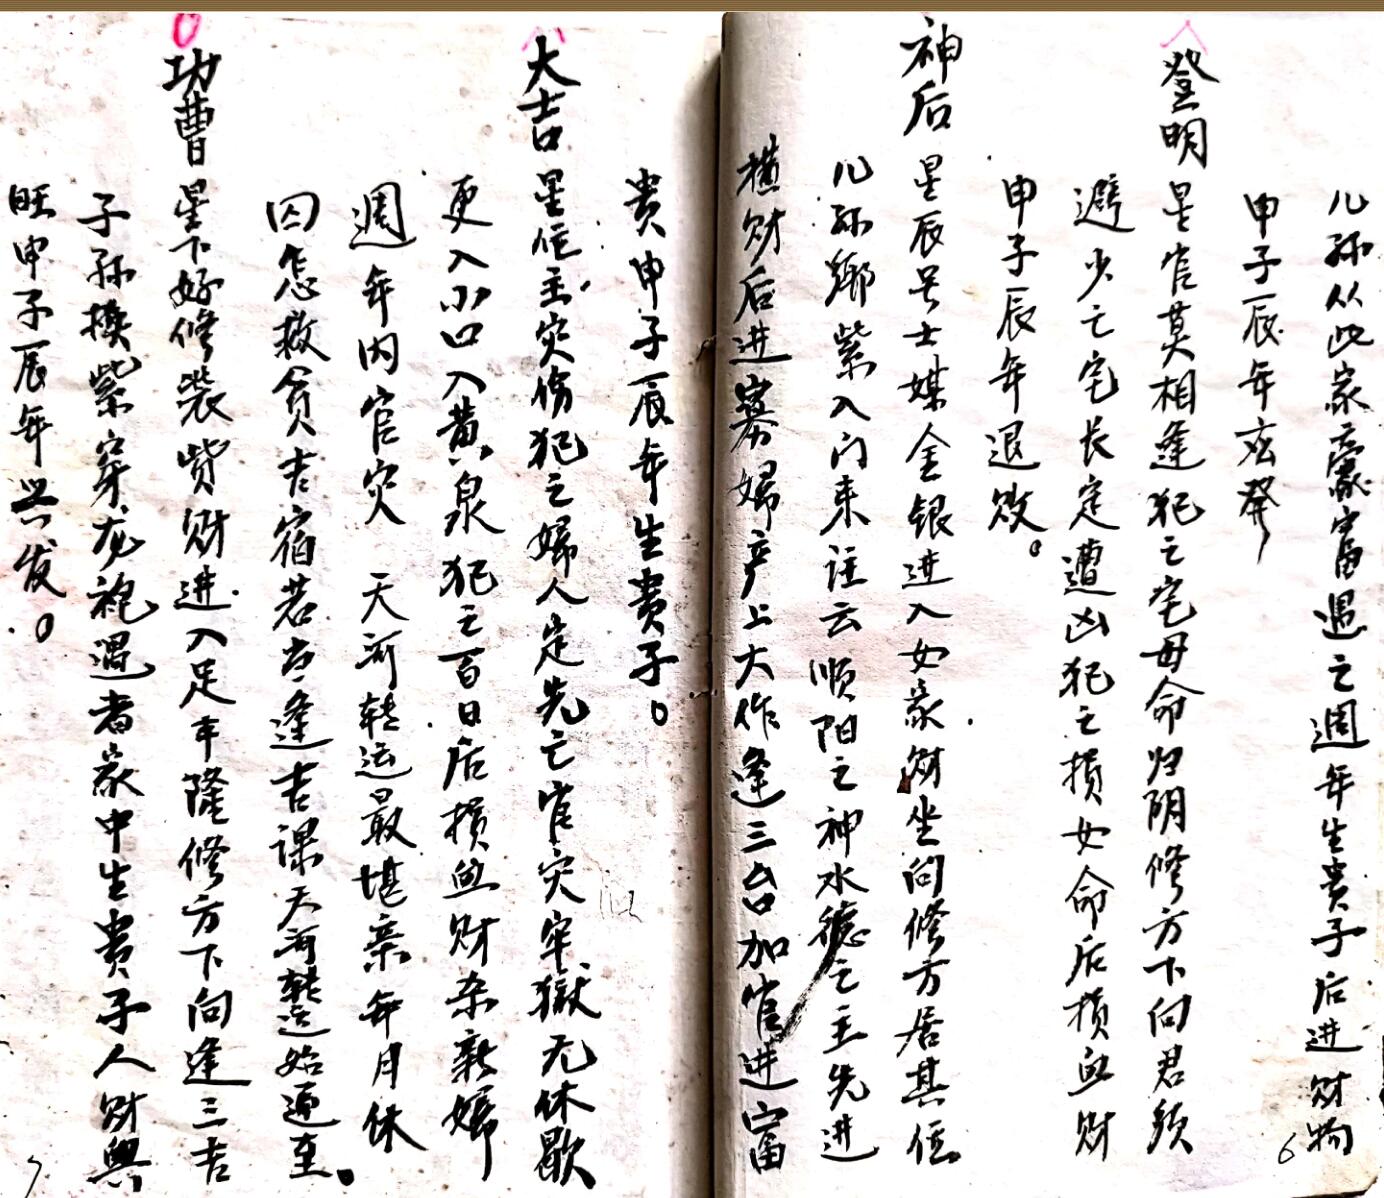 儿孙从此家豪富遇之週年生貴子后进财物
申子辰年发癸
登明星官莫相逢犯之宅母命归阴修方下向君须
避少亡宅长定遭凶犯之损女命后损血财
申子辰年退败。
神后星辰号士媒金银进入女家财坐向修方居其位
儿孙挪紫入门来註云顺阳之神水德之主先进
横财后进寡婦产上大作逢三台加官进富
贵申子辰年生贵子。
大吉星位主灾伤犯之婦人定先亡官灾牢獄无休歇
更入小口入黄泉犯之百日后损血财杀新婦
週年内官灾 天河转运最堪亲年月休
囚怎救貧吉宿若当逢吉课天河转运始通至。
功曹星下好修裝赀财进入足丰隆修方下向逢三吉
子孙换紫穿龙袍遇者家中生贵子人财興
旺申子辰年兴发。
6
7